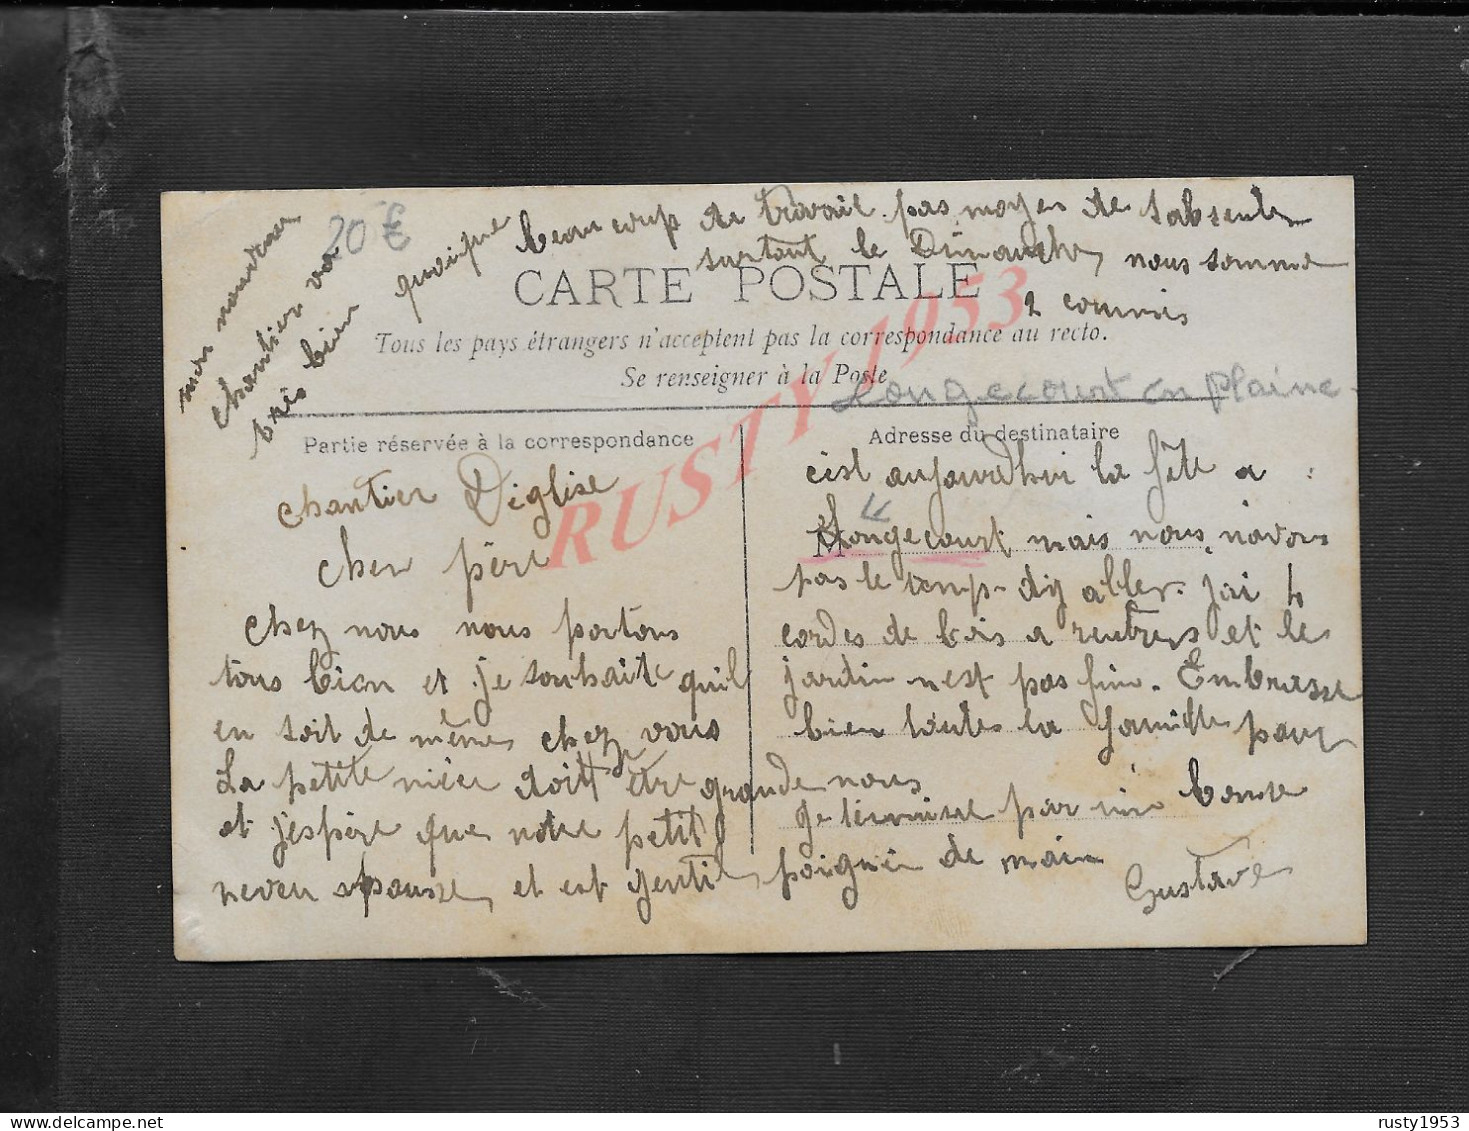 mon nouveau
chantier va
très bien
20 €
quoique beaucoup de travail pas moyen de s'absenter
surtout le Dimanche, nous somme
2 commis
CARTE POSTALE
Tous les pays étrangers n'acceptent pas la correspondance au recto.
Se renseigner à la Poste
Longecourt en plaine
Partie réservée à la correspondance
Adresse du destinataire
chantier D'église
cher père
chez nous nous portons
tous bien et je souhaite quil
en soit de même chez vous
La petite nièce doit être grande
et j'espère que notre petit
neveu pousse, et est gentil,
c'est aujourd'hui la fête a
Longecourt mais nous n'avons
pas le temp d'y aller. j'ai 4
cordes de bois a rentrers et le
jardin n'est pas fini. Embrasse
bien toutes la famille pour
nous
je termine par une bonne
poignée de main
Gustave
RUSTY 1953
rusty1953